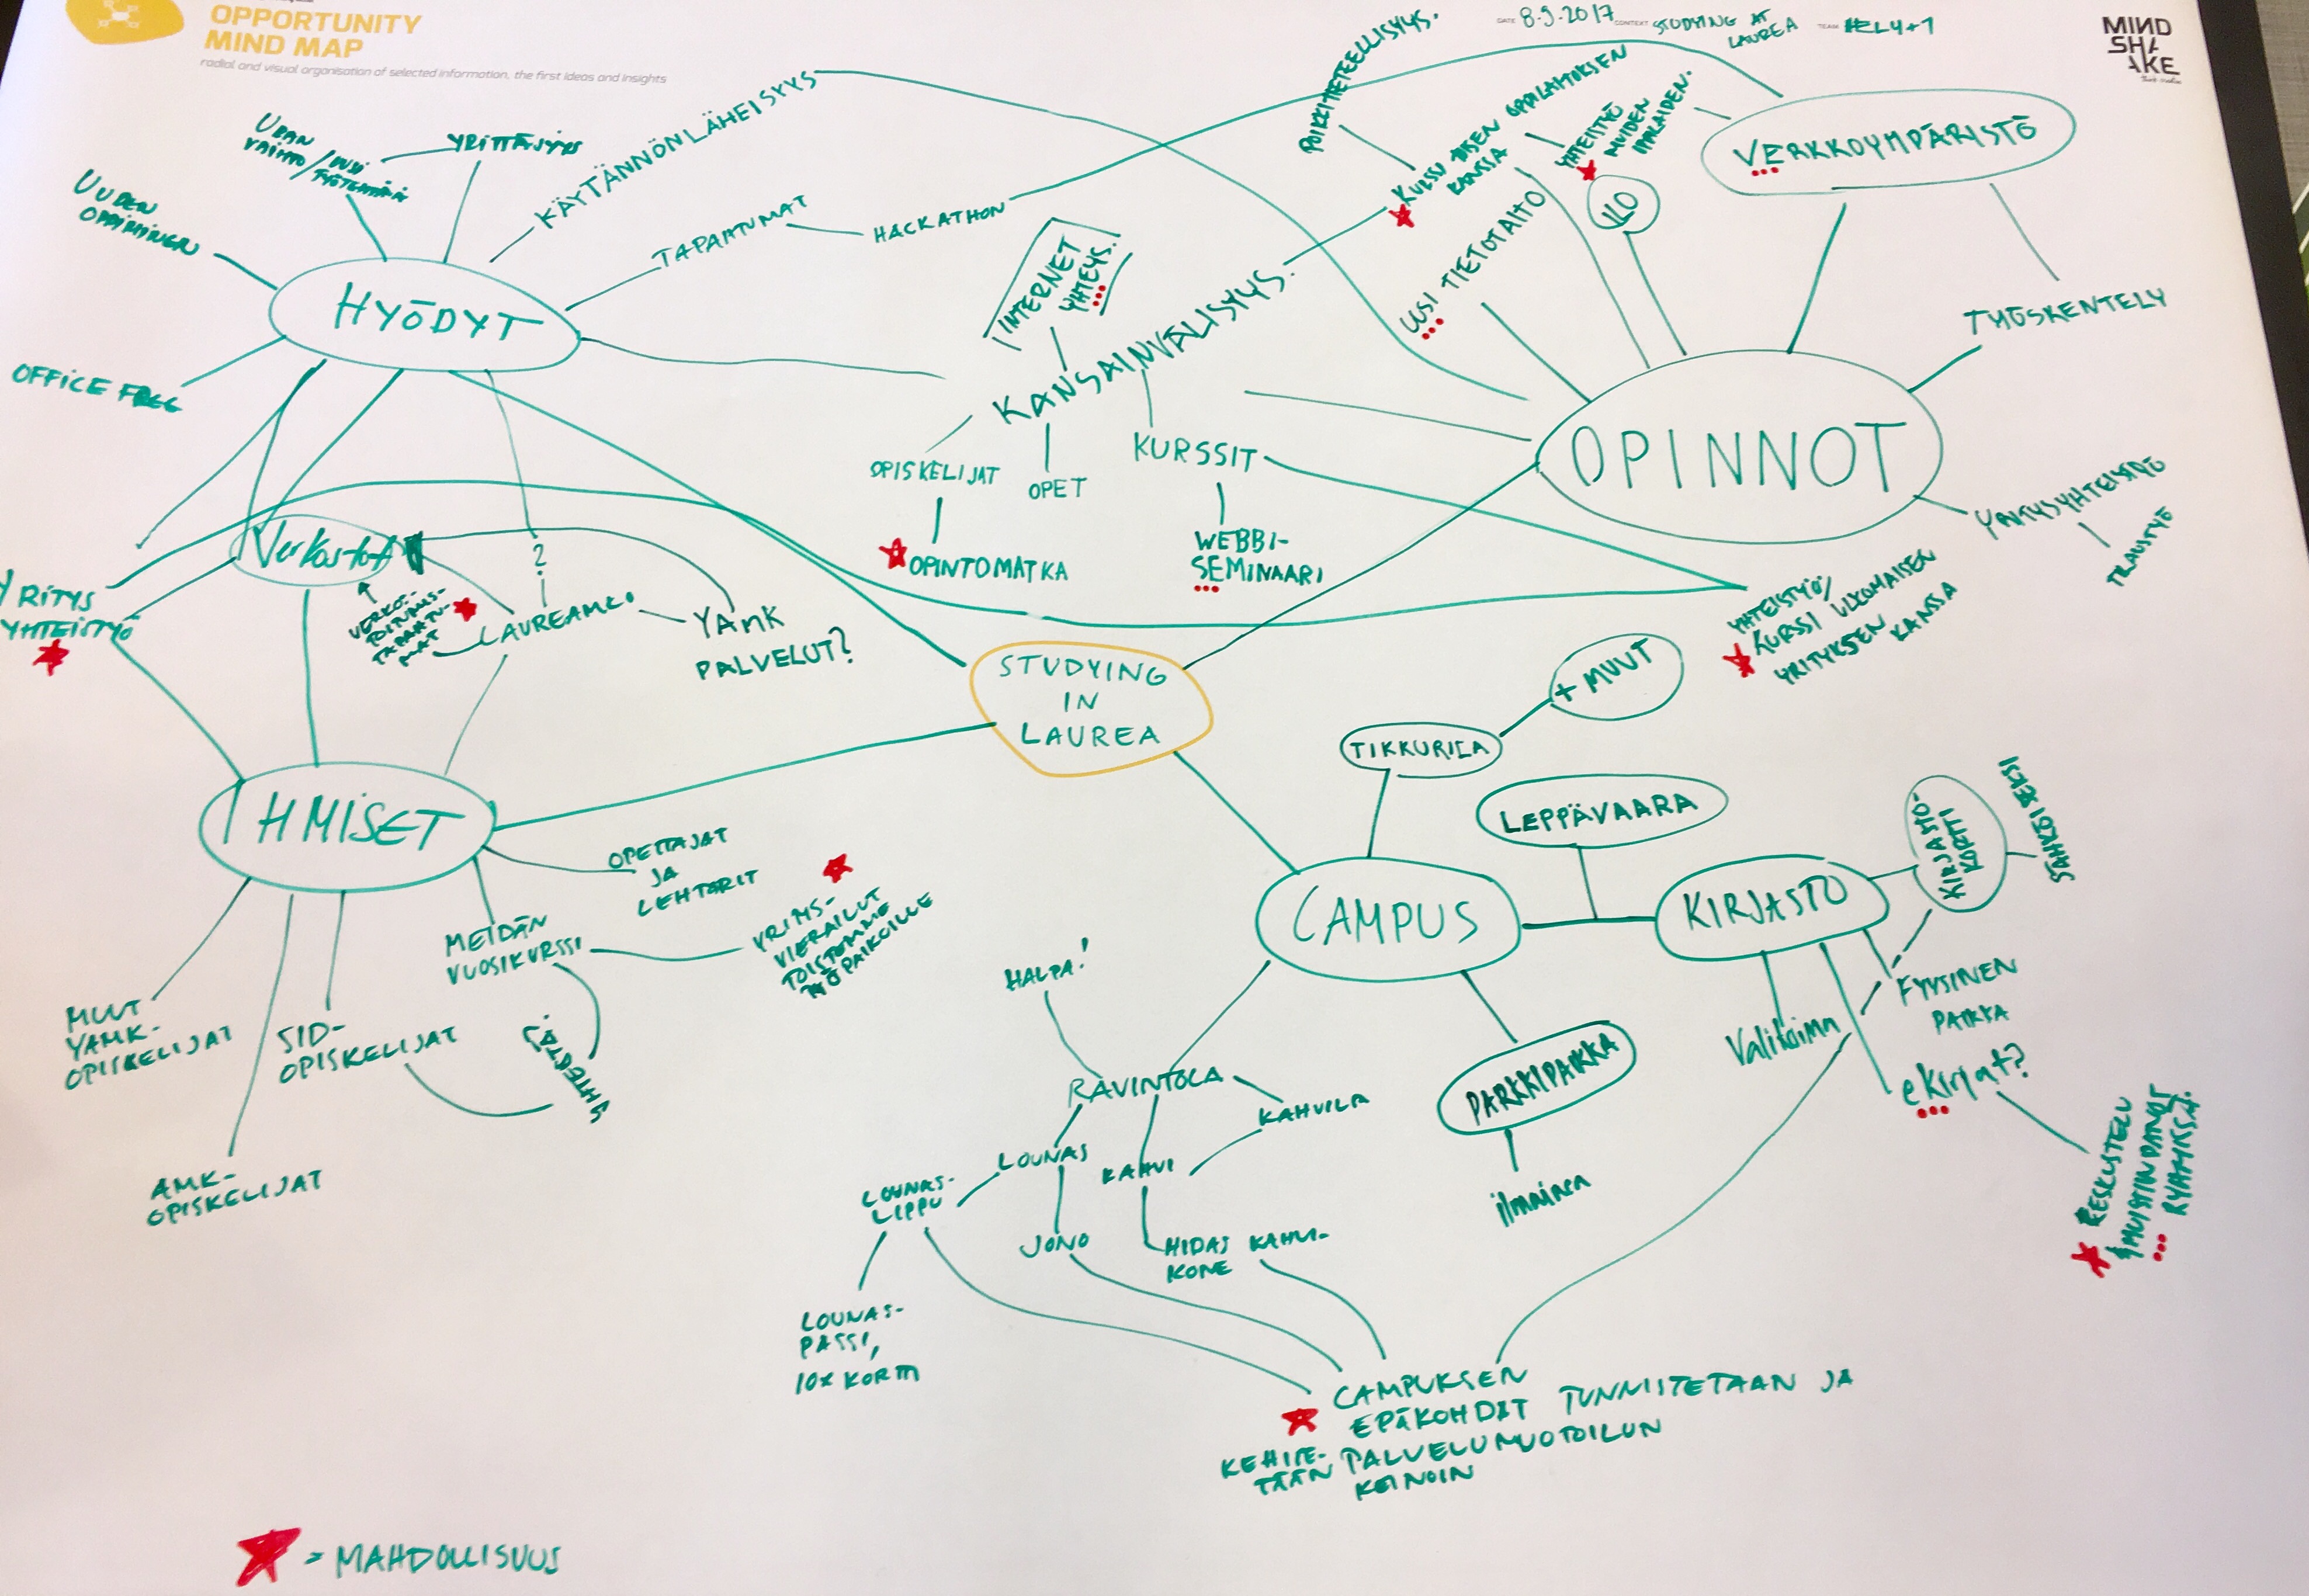 OPPORTUNITY
MIND MAP
radial and visual organisation of selected information, the first ideas and insights
DATE 8.9.2017 CONTEXT STUDYING AT
LAUREA TEAM HELY+1
MIND
SHA
AKE
URAN
VAIHTO / UUSI
YRITTÄJYYS
KÄYTÄNNÖNLÄHEISYYS
UUDEN
OPPIMINEN
TAPAHTUMAT
HACKATHON
HYÖDYT
OFFICE FREE
POIKKITIETEELLISYYS.
KURSSI TOISEN OPPILAITOKSEN
KANSSA
YHTEISTYÖ
MUIDEN
YLO
UUSI TIETOTAITO
VERKKOYMPÄRISTÖ
TYÖSKENTELY
INTERNET
YHTEYS.
KANSAINVÄLISYYS.
OPISKELIJAT
OPET
KURSSIT
OPINTOMATKA
WEBBI-
SEMINAARI
OPINNOT
YRITYSYHTEISTYÖ
YHTEISTYÖ/
KURSSI ULKOMAISEN
YRITYKSEN KANSSA
Verkostot
YRITYS
YHTEISTYÖ
VERKOS-
TOITUMIS-
TAPAHTU-
MAT
?
LAUREAMKO
YAMK
PALVELUT?
STUDYING
IN
LAUREA
IHMISET
OPETTAJAT
JA
LEHTORIT
MEIDÄN
VUOSIKURSSI
YRITYS-
VIERAILUT
TOISTEMME
TYÖPAIKOILLE
MUUT
YAMK-
OPISKELIJAT
SID-
OPISKELIJAT
YHTEISTÄ?
AMK-
OPISKELIJAT
+ MUUT
TIKKURILA
LEPPÄVAARA
CAMPUS
KIRJASTO
KIRJASTO-
KORTTI
SÄHKÖISEKSI
FYYSINEN
PAIKKA
Valikoima
eKirjat?
KESKUSTELU
RYHMISSÄ.
PARKKIPAIKKA
ilmainen
HALPA!
RAVINTOLA
KAHVILA
LOUNAS
KAHVI
LOUNAS-
LIPPU
JONO
HIDAS KAHVI-
KONE
LOUNAS-
PASSI,
10X KORTTI
CAMPUKSEN
EPÄKOHDAT TUNNISTETAAN JA
KEHITE-
TÄÄN PALVELUMUOTOILUN
KEINOIN
= MAHDOLLISUUS